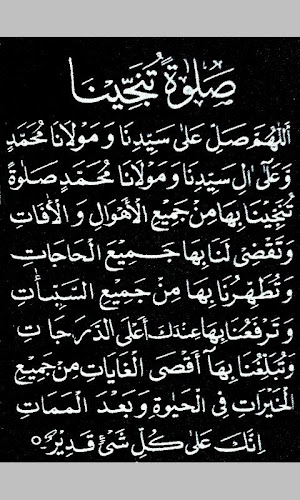 صَلٰوةٌ تُنَجِّيْنَا
اَللّٰهُمَّ صَلِّ عَلٰى سَيِّدِنَا وَ مَوْلَانَا مُحَمَّدٍ
وَّعَلٰٓى اٰلِ سَيِّدِنَا وَ مَوْلَانَا مُحَمَّدٍ صَلٰوةً
تُنَجِّيْنَا بِهَا مِنْ جَمِيْعِ الْاَهْوَالِ وَ الْاٰفَاتِ
وَتَقْضِىْ لَنَا بِهَا جَمِيْعَ الْحَاجَاتِ
وَتُطَهِّرُنَا بِهَا مِنْ جَمِيْعِ السَّيِّئٰاتِ
وَ تَرْفَعُنَا بِهَا عِنْدَكَ اَعْلَى الدَّرَجَاتِ
وَتُبَلِّغُنَا بِهَا اَقْصَى الْغَايَاتِ مِنْ جَمِيْعِ
الْخَيْرَاتِ فِى الْحَيٰوةِ وَ بَعْدَ الْمَمَاتِ
اِنَّكَ عَلٰى كُلِّ شَىْءٍ قَدِيْرٌ۝